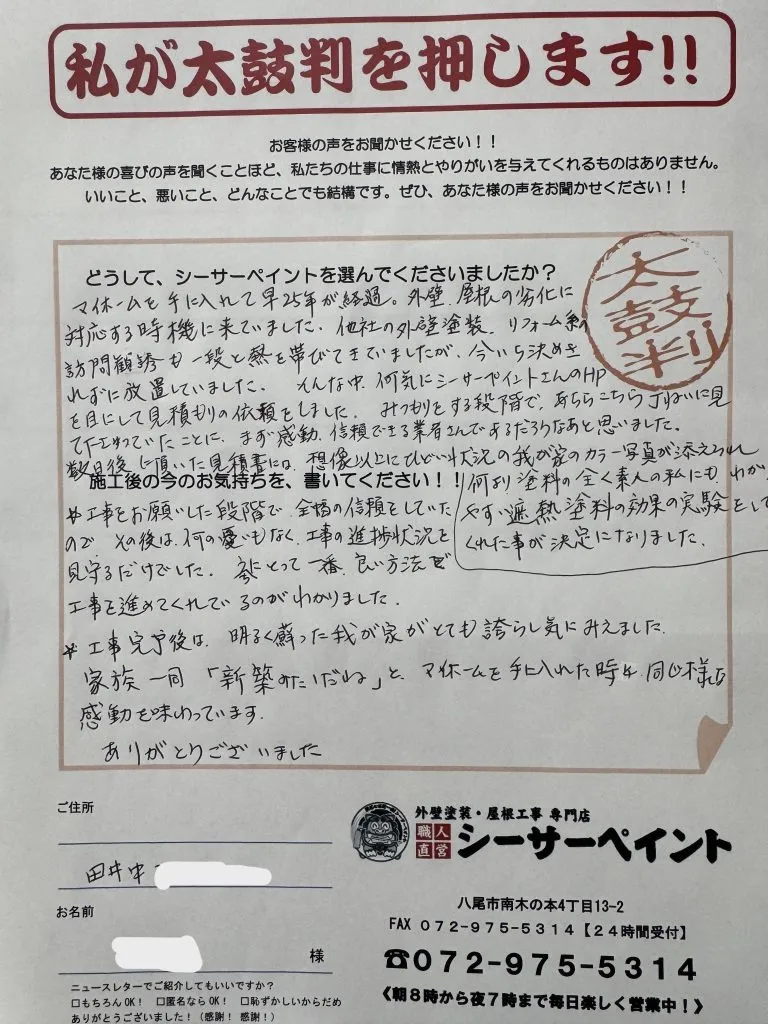 私が太鼓判を押します!!
お客様の声をお聞かせください！！
あなた様の喜びの声を聞くことほど、私たちの仕事に情熱とやりがいを与えてくれるものはありません。
いいこと、悪いこと、どんなことでも結構です。ぜひ、あなた様の声をお聞かせください！！
太鼓判
どうして、シーサーペイントを選んでくださいましたか？
マイホームを手に入れて早25年が経過。外壁、屋根の劣化に
対応する時機に来ていました。他社の外壁塗装、リフォーム系の
訪問勧誘も一段と熱を帯びてきていましたが、今いち決めき
れずに放置していました。そんな中、何気にシーサーペイントさんのHP
を目にして見積もりの依頼をしました。みつもりをする段階で、あちらこちら丁ねいに見
て下さっていたことに、まず感動、信頼できる業者さんであるだろうなあと思いました。
数日後に頂いた見積書には、想像以上にひどい状況の我が家のカラー写真が添えられ
何より塗料の全く素人の私にも、わかり
やすい遮熱塗料の効果の実験をして
くれた事が決定になりました。
施工後の今のお気持ちを、書いてください！！
*工事をお願いした段階で、全幅の信頼をしていた
ので、その後は、何の憂いもなく、工事の進捗状況を
見守るだけでした。家にとって一番、良い方法で
工事を進めてくれているのがわかりました。
*工事完了後は、明るく蘇った我が家がとても誇らし気にみえました。
家族一同「新築みたいだね」と、マイホームを手に入れた時と、同じ様な
感動を味わっています。
ありがとうございました
ご住所
田井中
お名前
様
ニュースレターでご紹介してもいいですか？
□もちろんOK！ □匿名ならOK！ □恥ずかしいからだめ
ありがとうございました！（感謝！感謝！）
外壁塗装・屋根工事 専門店
職人直営 シーサーペイント
八尾市南木の本4丁目13-2
FAX 072-975-5314【24時間受付】
☎072-975-5314
《朝8時から夜7時まで毎日楽しく営業中！》